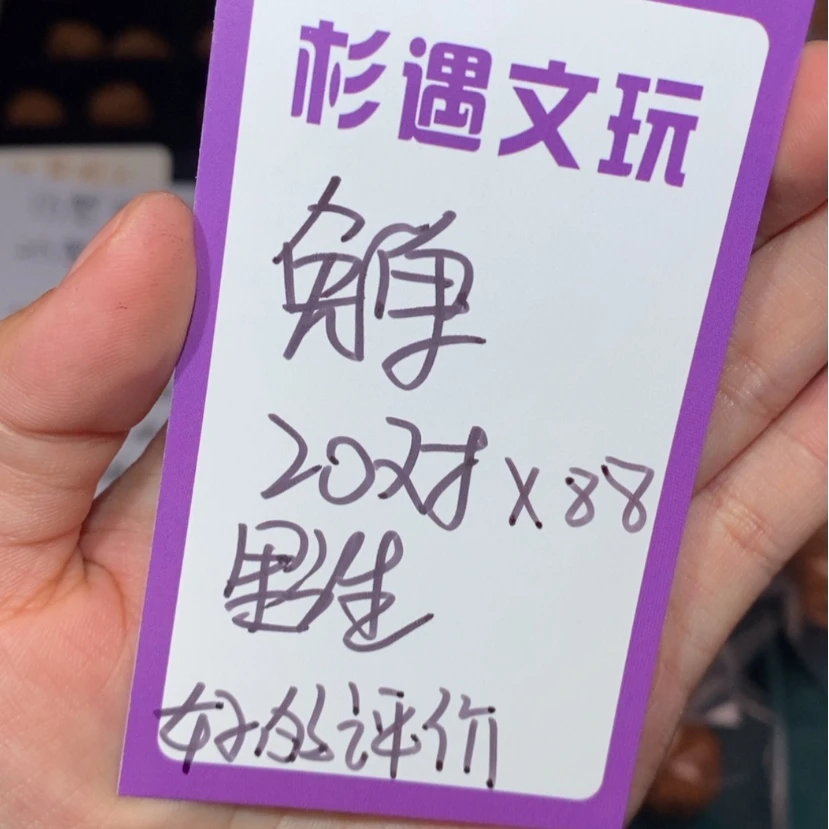 杉遇文玩
免单
20对 X 88
野生
好的评价